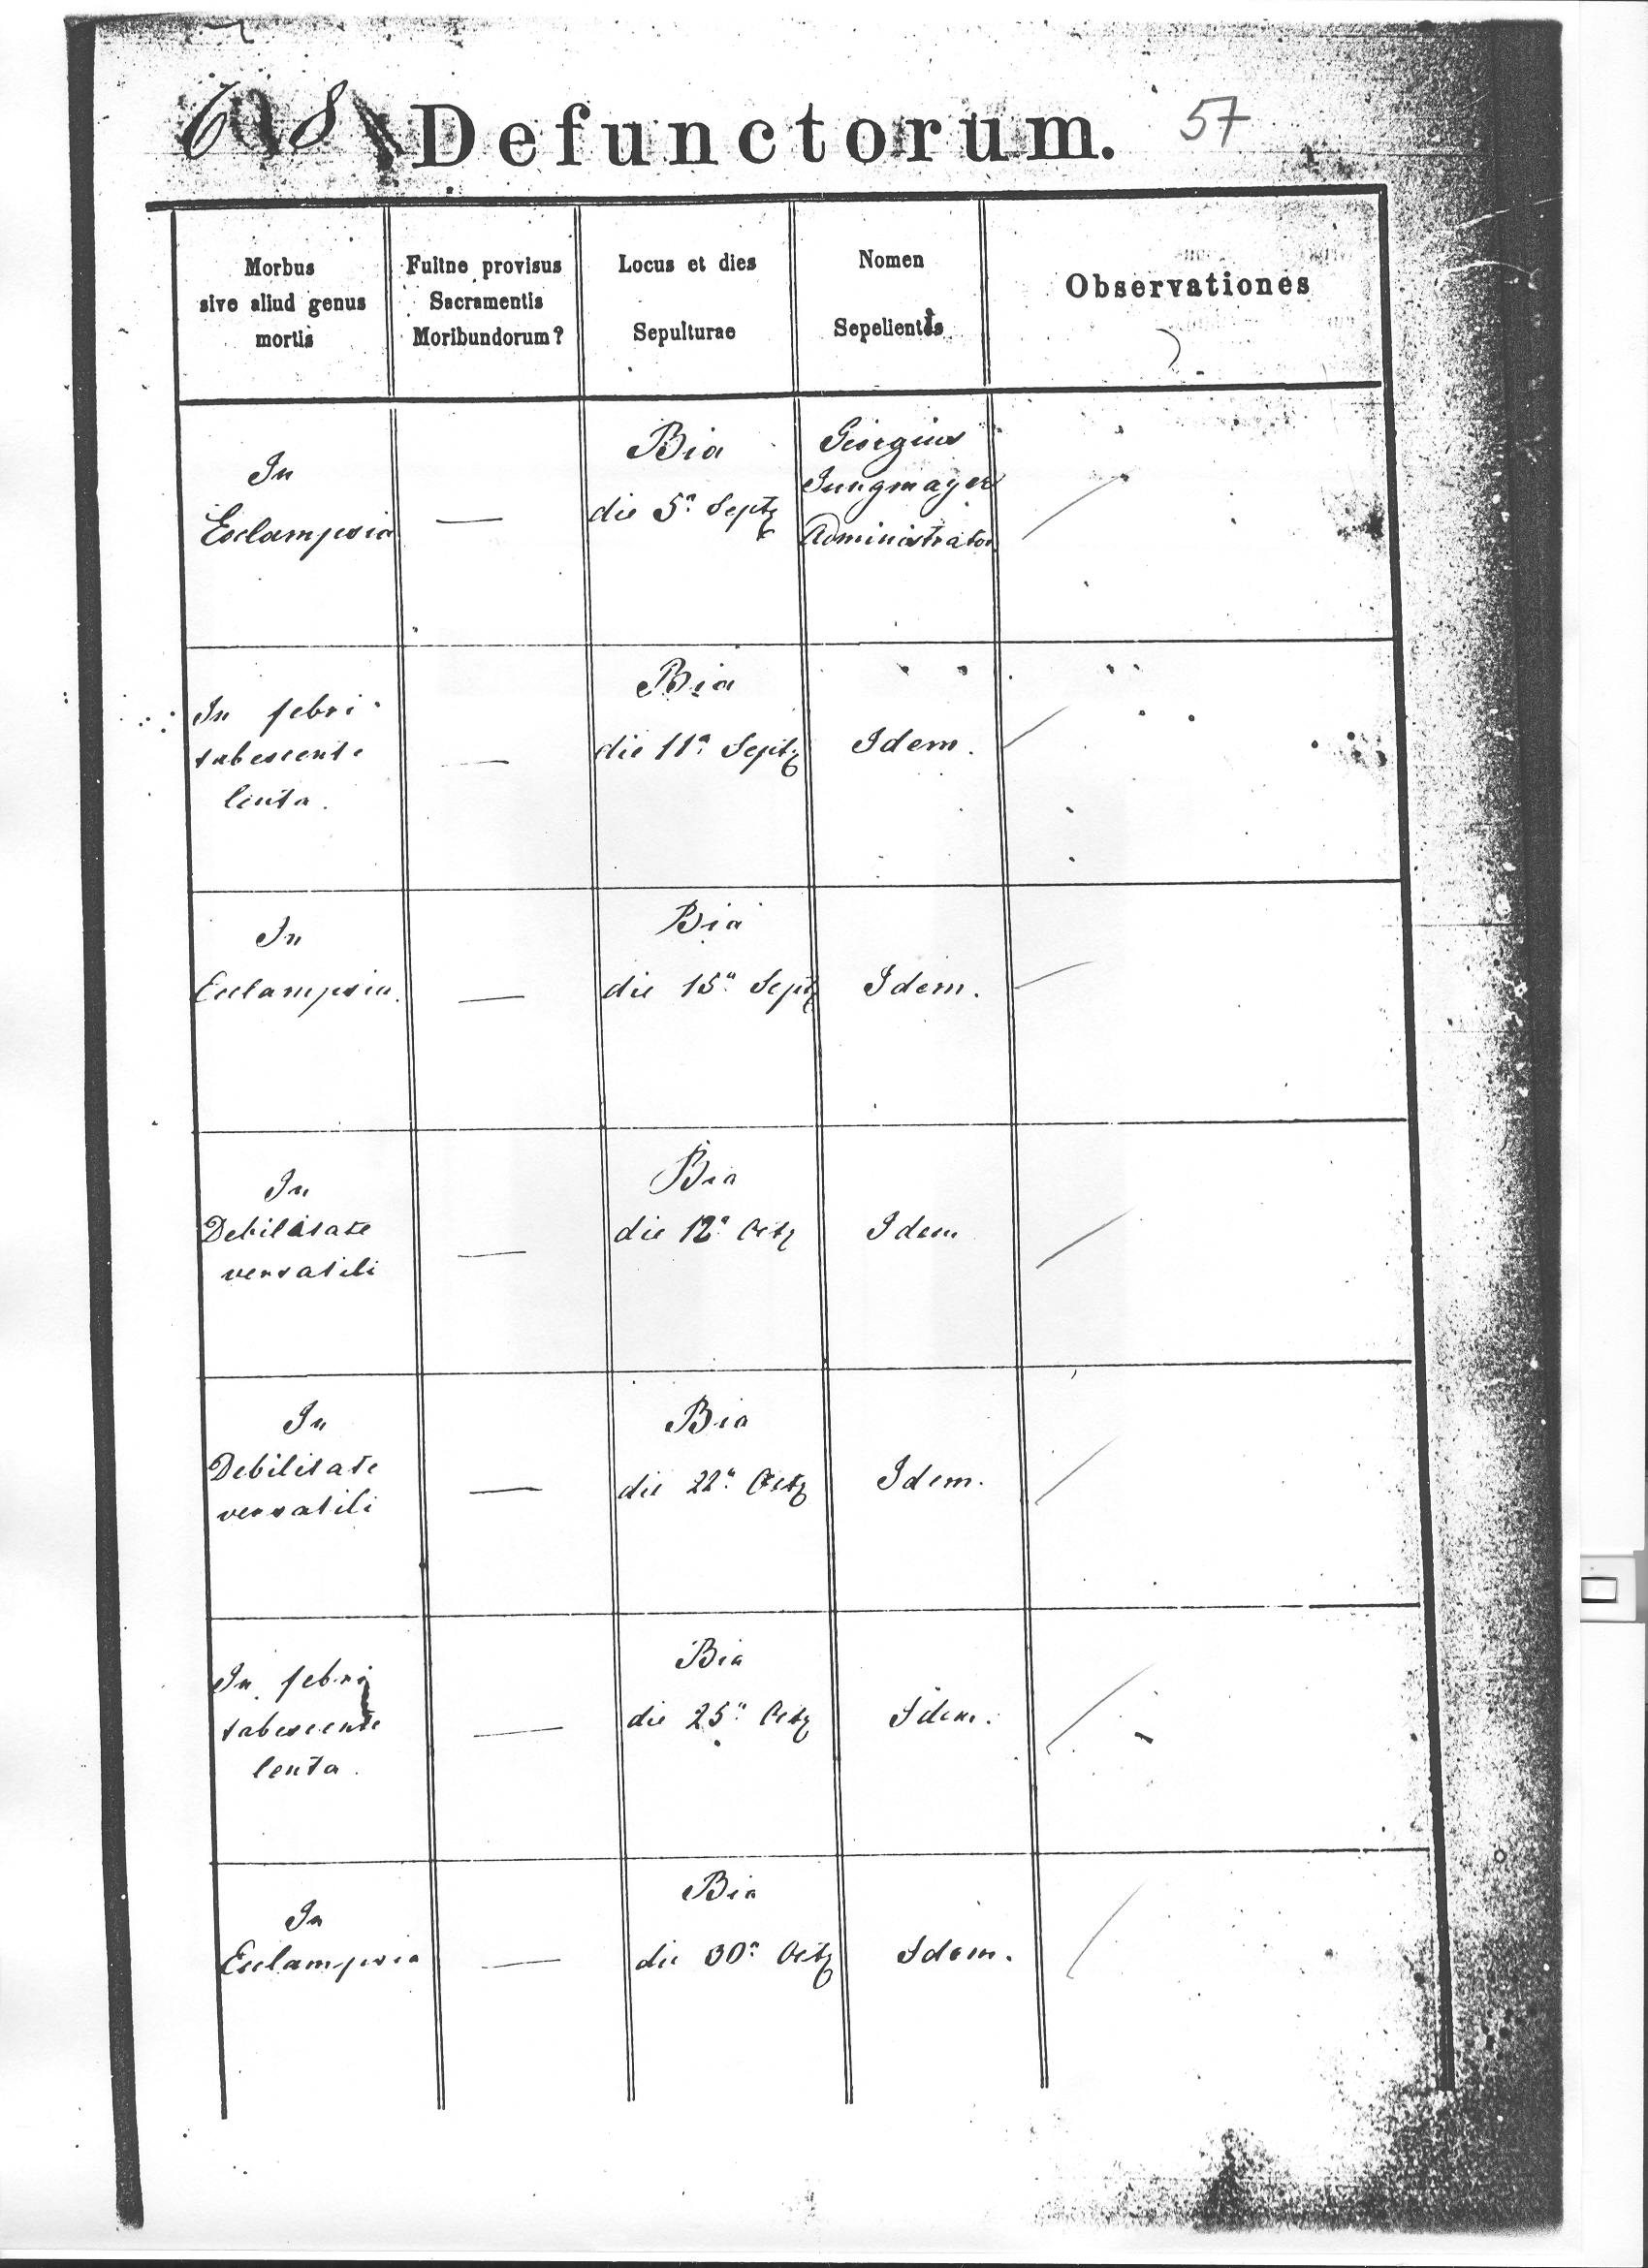 Defunctorum. 57
Morbus
sive aliud genus
mortis
Fuitne provisus
Sacramentis
Moribundorum?
Locus et dies
Sepulturae
Nomen
Sepelientis
Observationes
In
Eclampsia
—
Bia
die 5ª Septr
Georgius
Jungmayer
Administrator
In febri
tabescente
lenta.
—
Bia
die 11ª Septr
Idem.
In
Eclampsia.
—
Bia
die 15ª Septr
Idem.
In
Debilitate
versatili
—
Bia
die 12ª Octr
Idem
In
Debilitate
versatili
—
Bia
die 22ª Octr
Idem.
In febri
tabescente
lenta.
—
Bia
die 25ª Octr
Idem.
In
Eclampsia
—
Bia
die 30ª Octr
Idem.